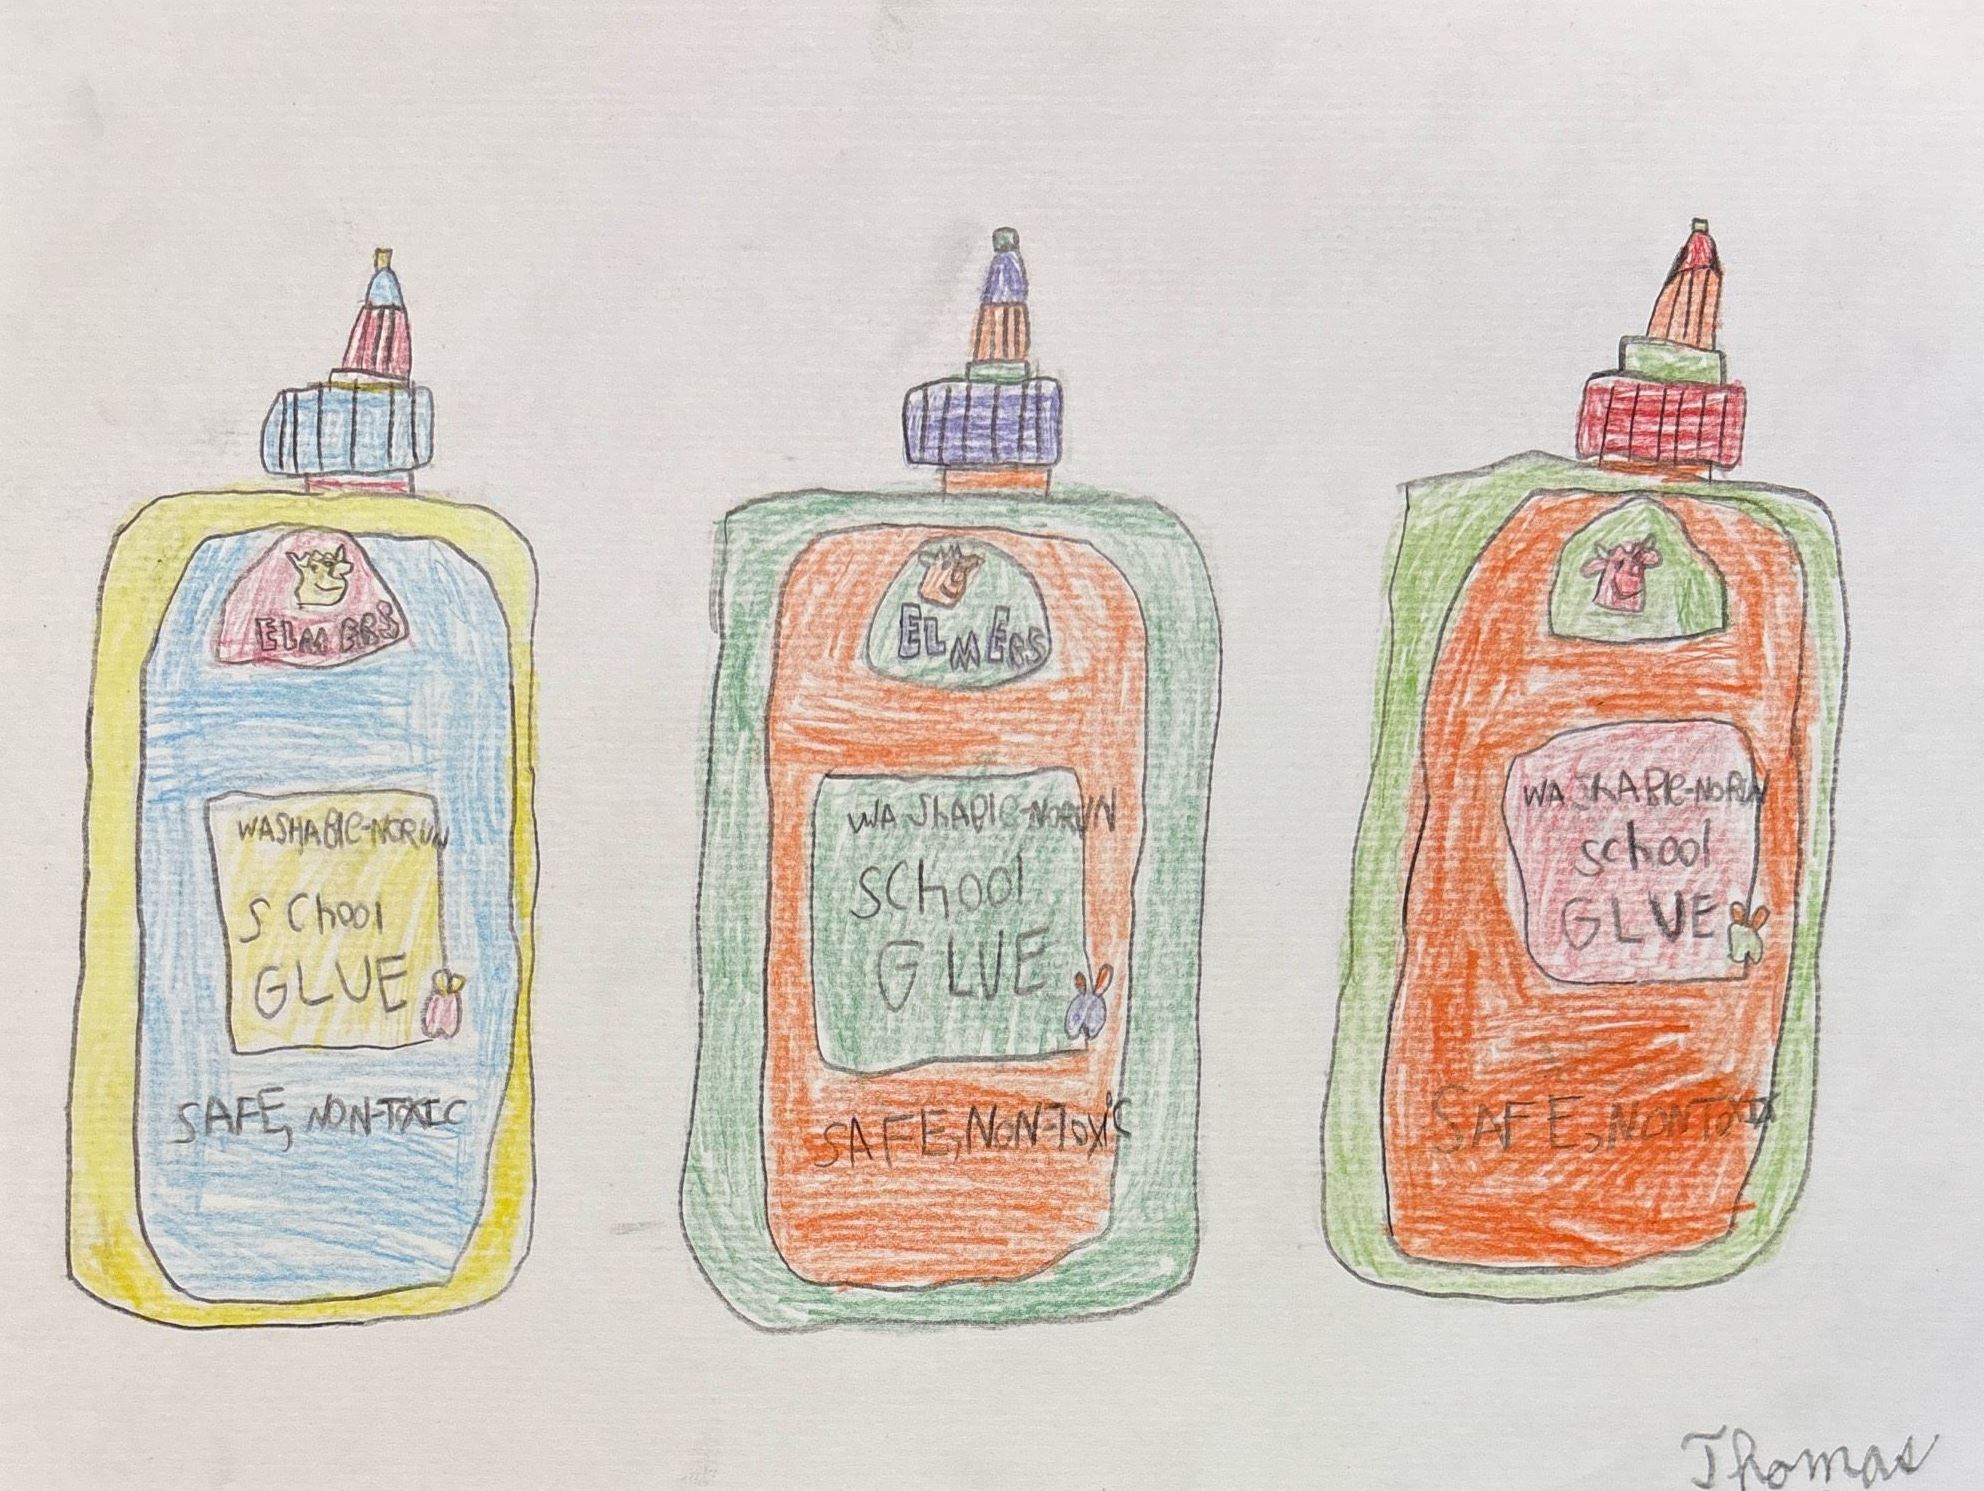 ELMERS
WASHABlE-NORUN
SChool
GLUE
SAFE, NON-TOXIC
ELMERS
WAShABlE-NORUN
SChool
GLUE
SAFE, NON-TOXiC
WAShABlE-NORUN
School
GLUE
SAFE, NONTOXIC
Thomas